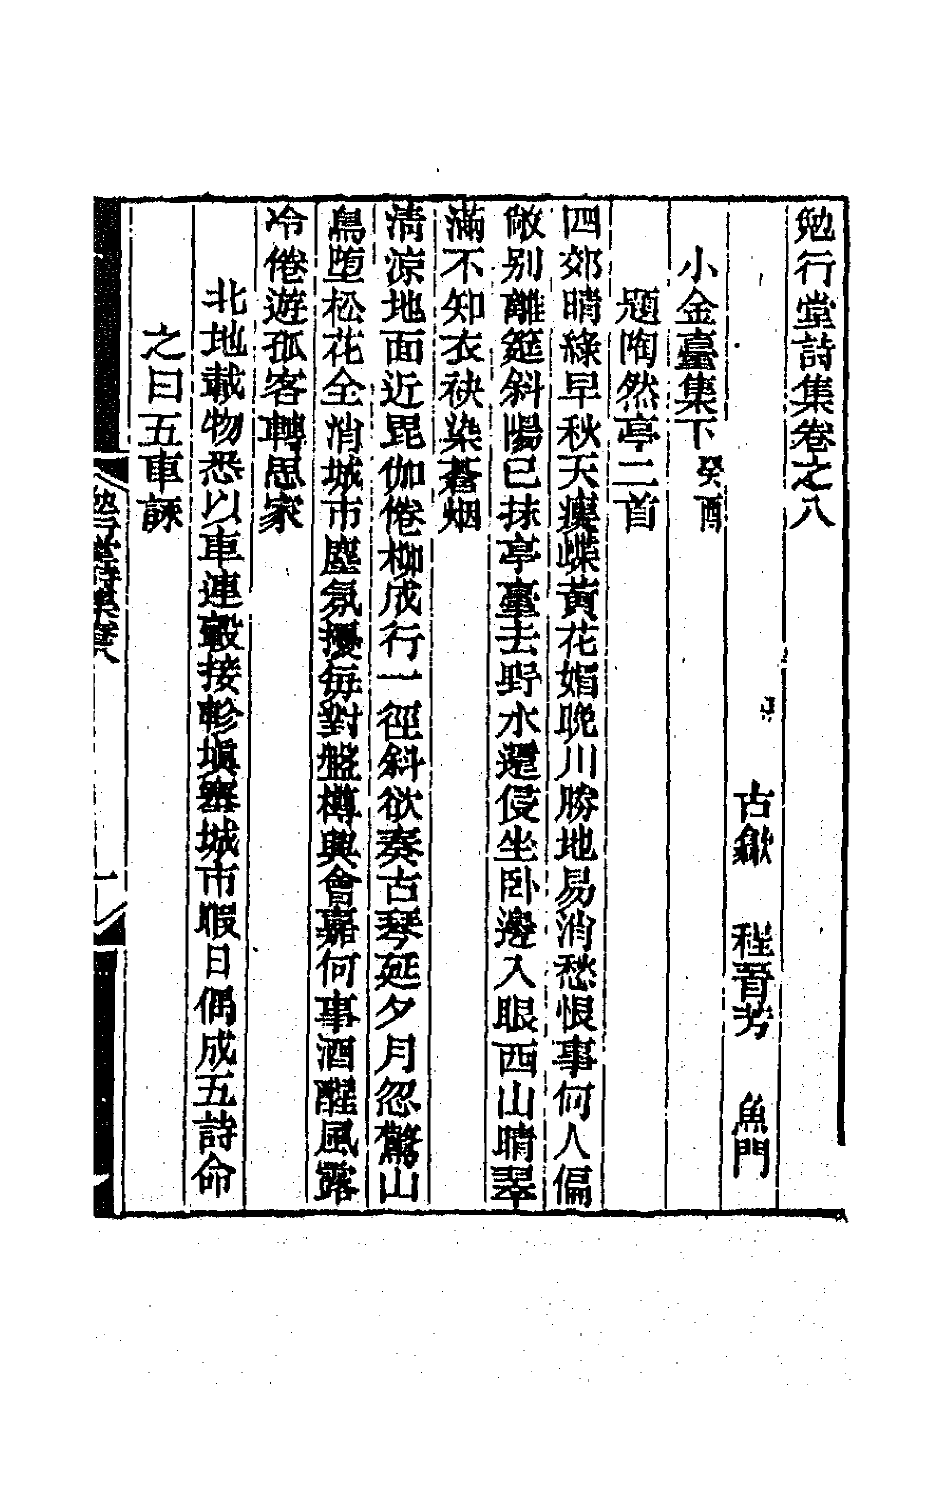 勉行堂詩集卷之八
古歙　程晉芳　魚門
小金臺集下癸酉
題陶然亭二首
四郊晴綠早秋天瘦蝶黃花媚晚川勝地易消愁恨事何人偏
敞別離筵斜陽已抹亭臺去野水還侵坐卧邊入眼西山晴翠
滿不知衣袂染蒼烟
清涼地面近毘伽倦柳成行一徑斜欲奏古琴延夕月忽驚山
鳥墮松花全消城市塵氛擾每對盤樽興會嘉何事酒醒風露
冷倦遊孤客轉思家
北地載物悉以車連轂接軫塡塞城市暇日偶成五詩命
之曰五車詠
勉行堂詩集卷八
一